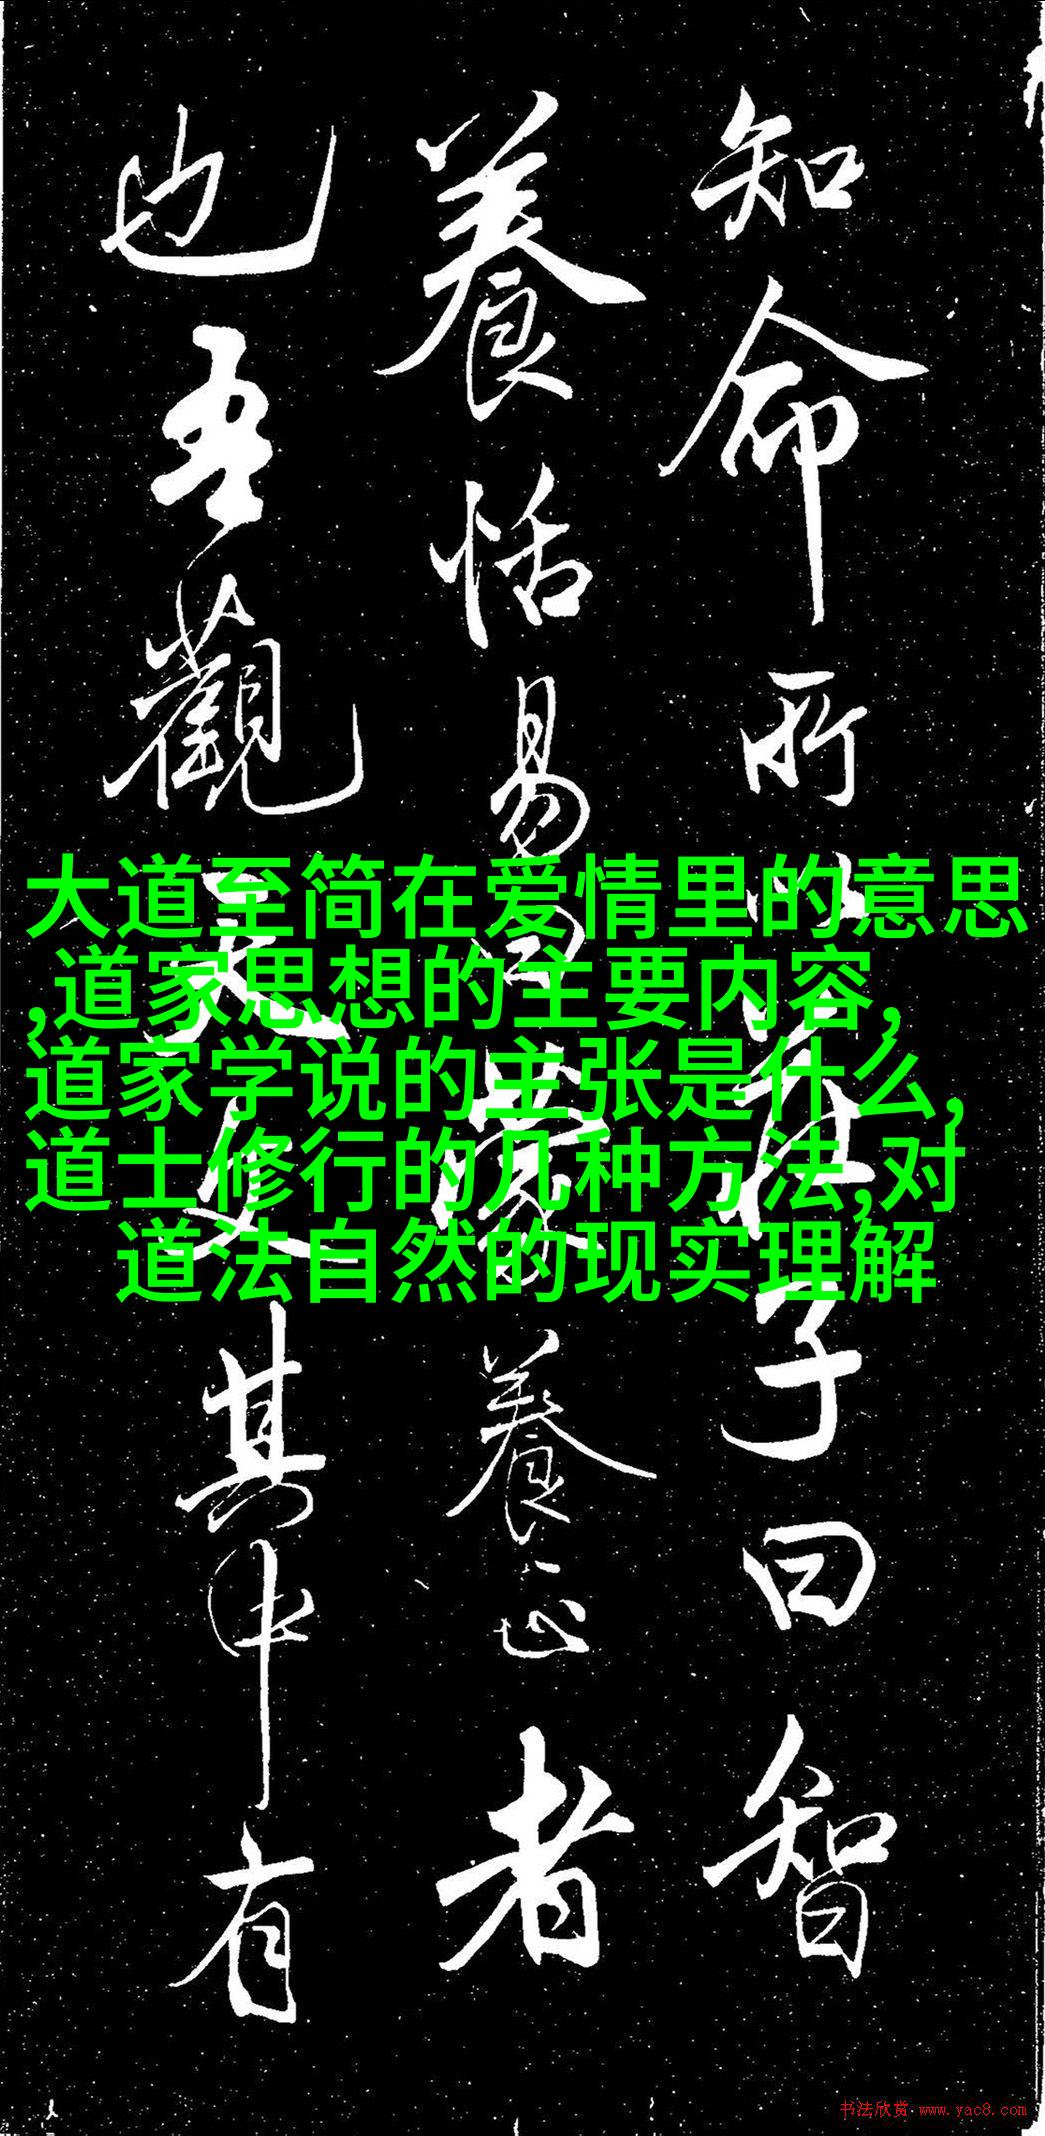 知命所以莊子曰智
養恬易曰蒙養正者
也吾觀天文其中有
大道至简在爱情里的意思
,道家思想的主要内容,
道家学说的主张是什么,
道士修行的几种方法,对
道法自然的现实理解
书法欣赏 www.yac8.com